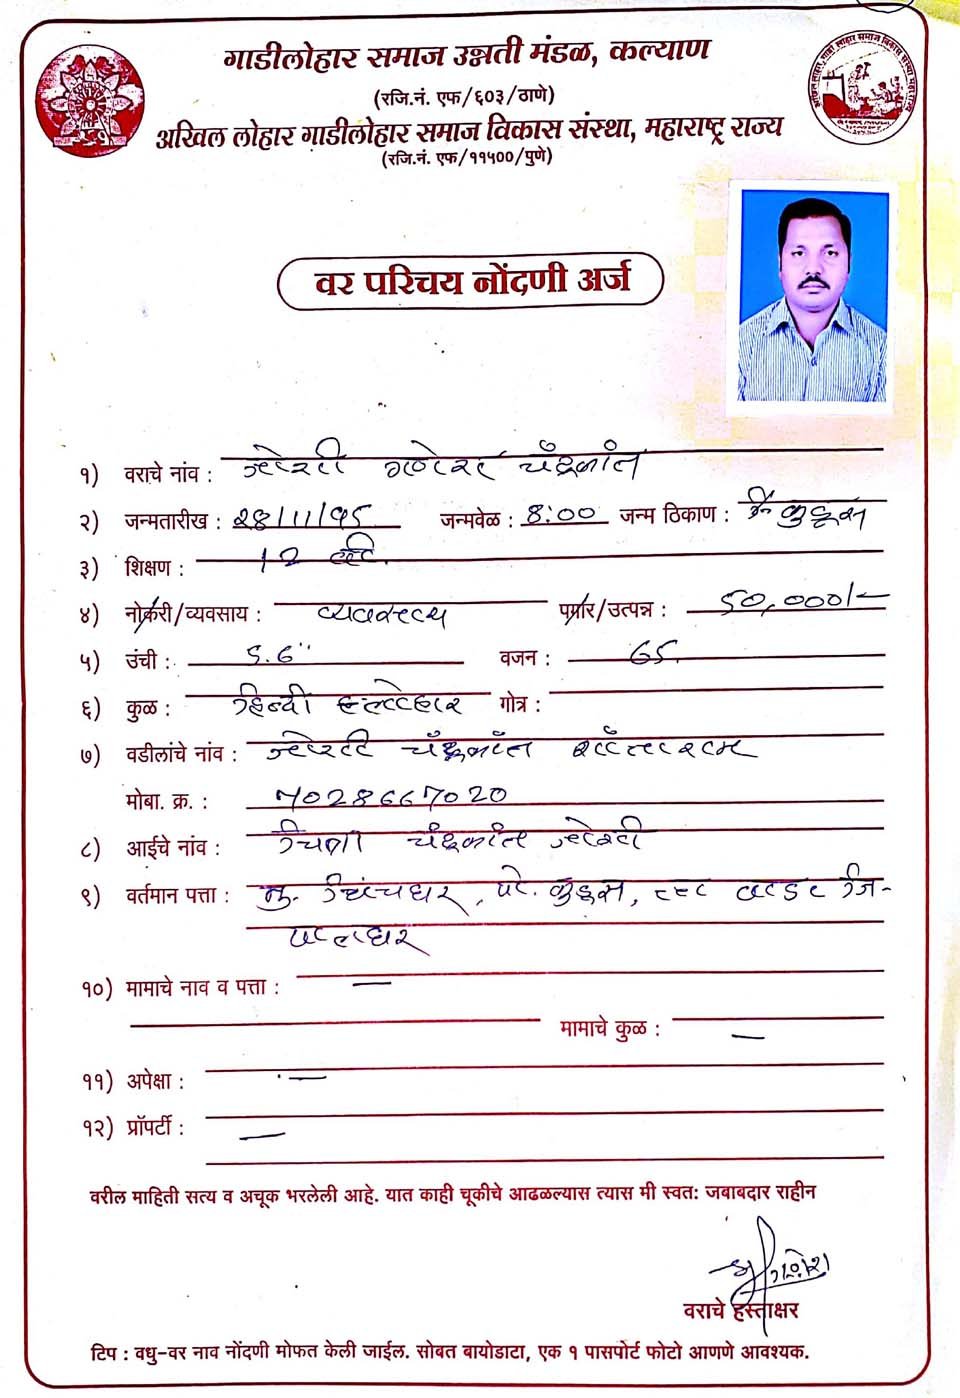 गाडीलोहार समाज उन्नती मंडळ, कल्याण
(रजि.नं. एफ/६०३/ठाणे)
अखिल लोहार गाडीलोहार समाज विकास संस्था, महाराष्ट्र राज्य
(रजि.नं. एफ/११५००/पुणे)
वर परिचय नोंदणी अर्ज
१) वराचे नांव : गणेश चंद्रकांत
२) जन्मतारीख : जन्मवेळ : 8:00 जन्म ठिकाण : कुडूस
३) शिक्षण : 12 वी.
४) नोकरी/व्यवसाय : व्यवसाय पगार/उत्पन्न : 50,000/-
५) उंची : 5.6" वजन : 65.
६) कुळ : गोत्र :
७) वडीलांचे नांव : चंद्रकांत
मोबा. क्र. : 7028667020
८) आईचे नांव : चंद्रकांत
९) वर्तमान पत्ता : मु. चिंचघर, पो. कुडूस, ता. वाडा जि-
पालघर
१०) मामाचे नाव व पत्ता : —
मामाचे कुळ : —
११) अपेक्षा : —
१२) प्रॉपर्टी : —
वरील माहिती सत्य व अचूक भरलेली आहे. यात काही चूकीचे आढळल्यास त्यास मी स्वत: जबाबदार राहीन
वराचे हस्ताक्षर
टिप : वधु-वर नाव नोंदणी मोफत केली जाईल. सोबत बायोडाटा, एक १ पासपोर्ट फोटो आणणे आवश्यक.